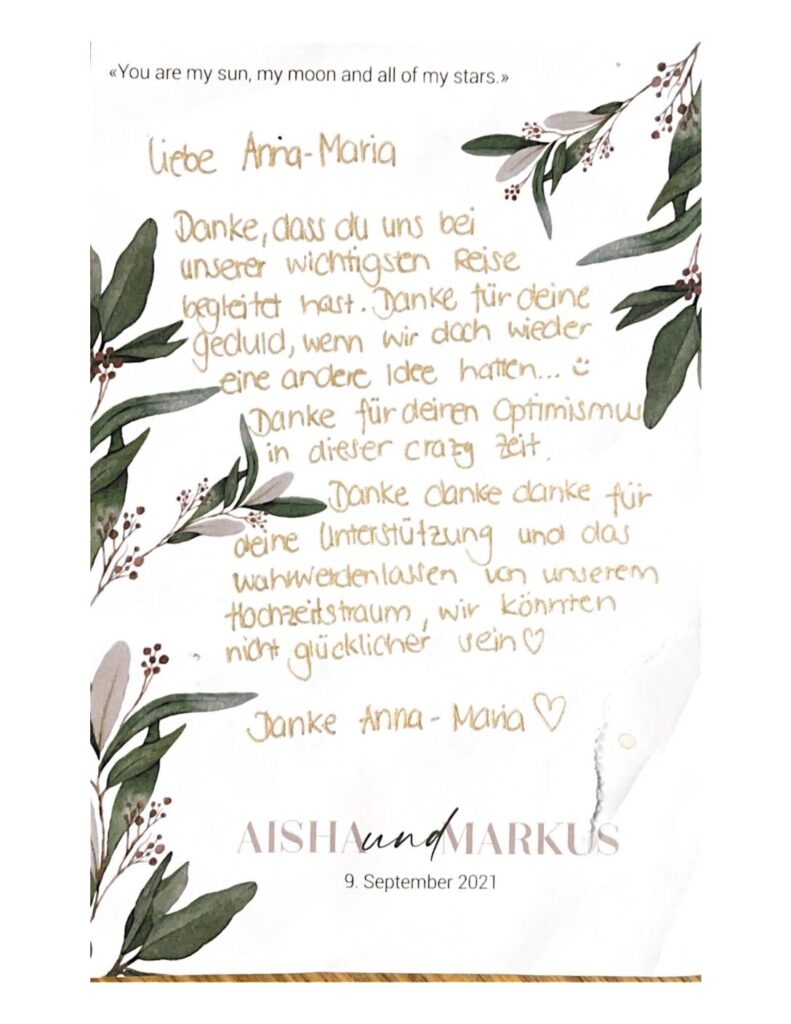 «You are my sun, my moon and all of my stars.»
Liebe Anna-Maria
Danke, dass du uns bei
unserer wichtigsten Reise
begleitet hast. Danke für deine
geduld, wenn wir doch wieder
eine andere Idee hatten... ü
Danke für deinen Optimismus
in dieser crazy zeit.
Danke danke danke für
deine Unterstützung und das
wahrwerdenlassen von unserem
Hochzeitstraum, wir könnten
nicht glücklicher sein♡
Danke Anna-Maria ♡
AISHA und MARKUS
9. September 2021